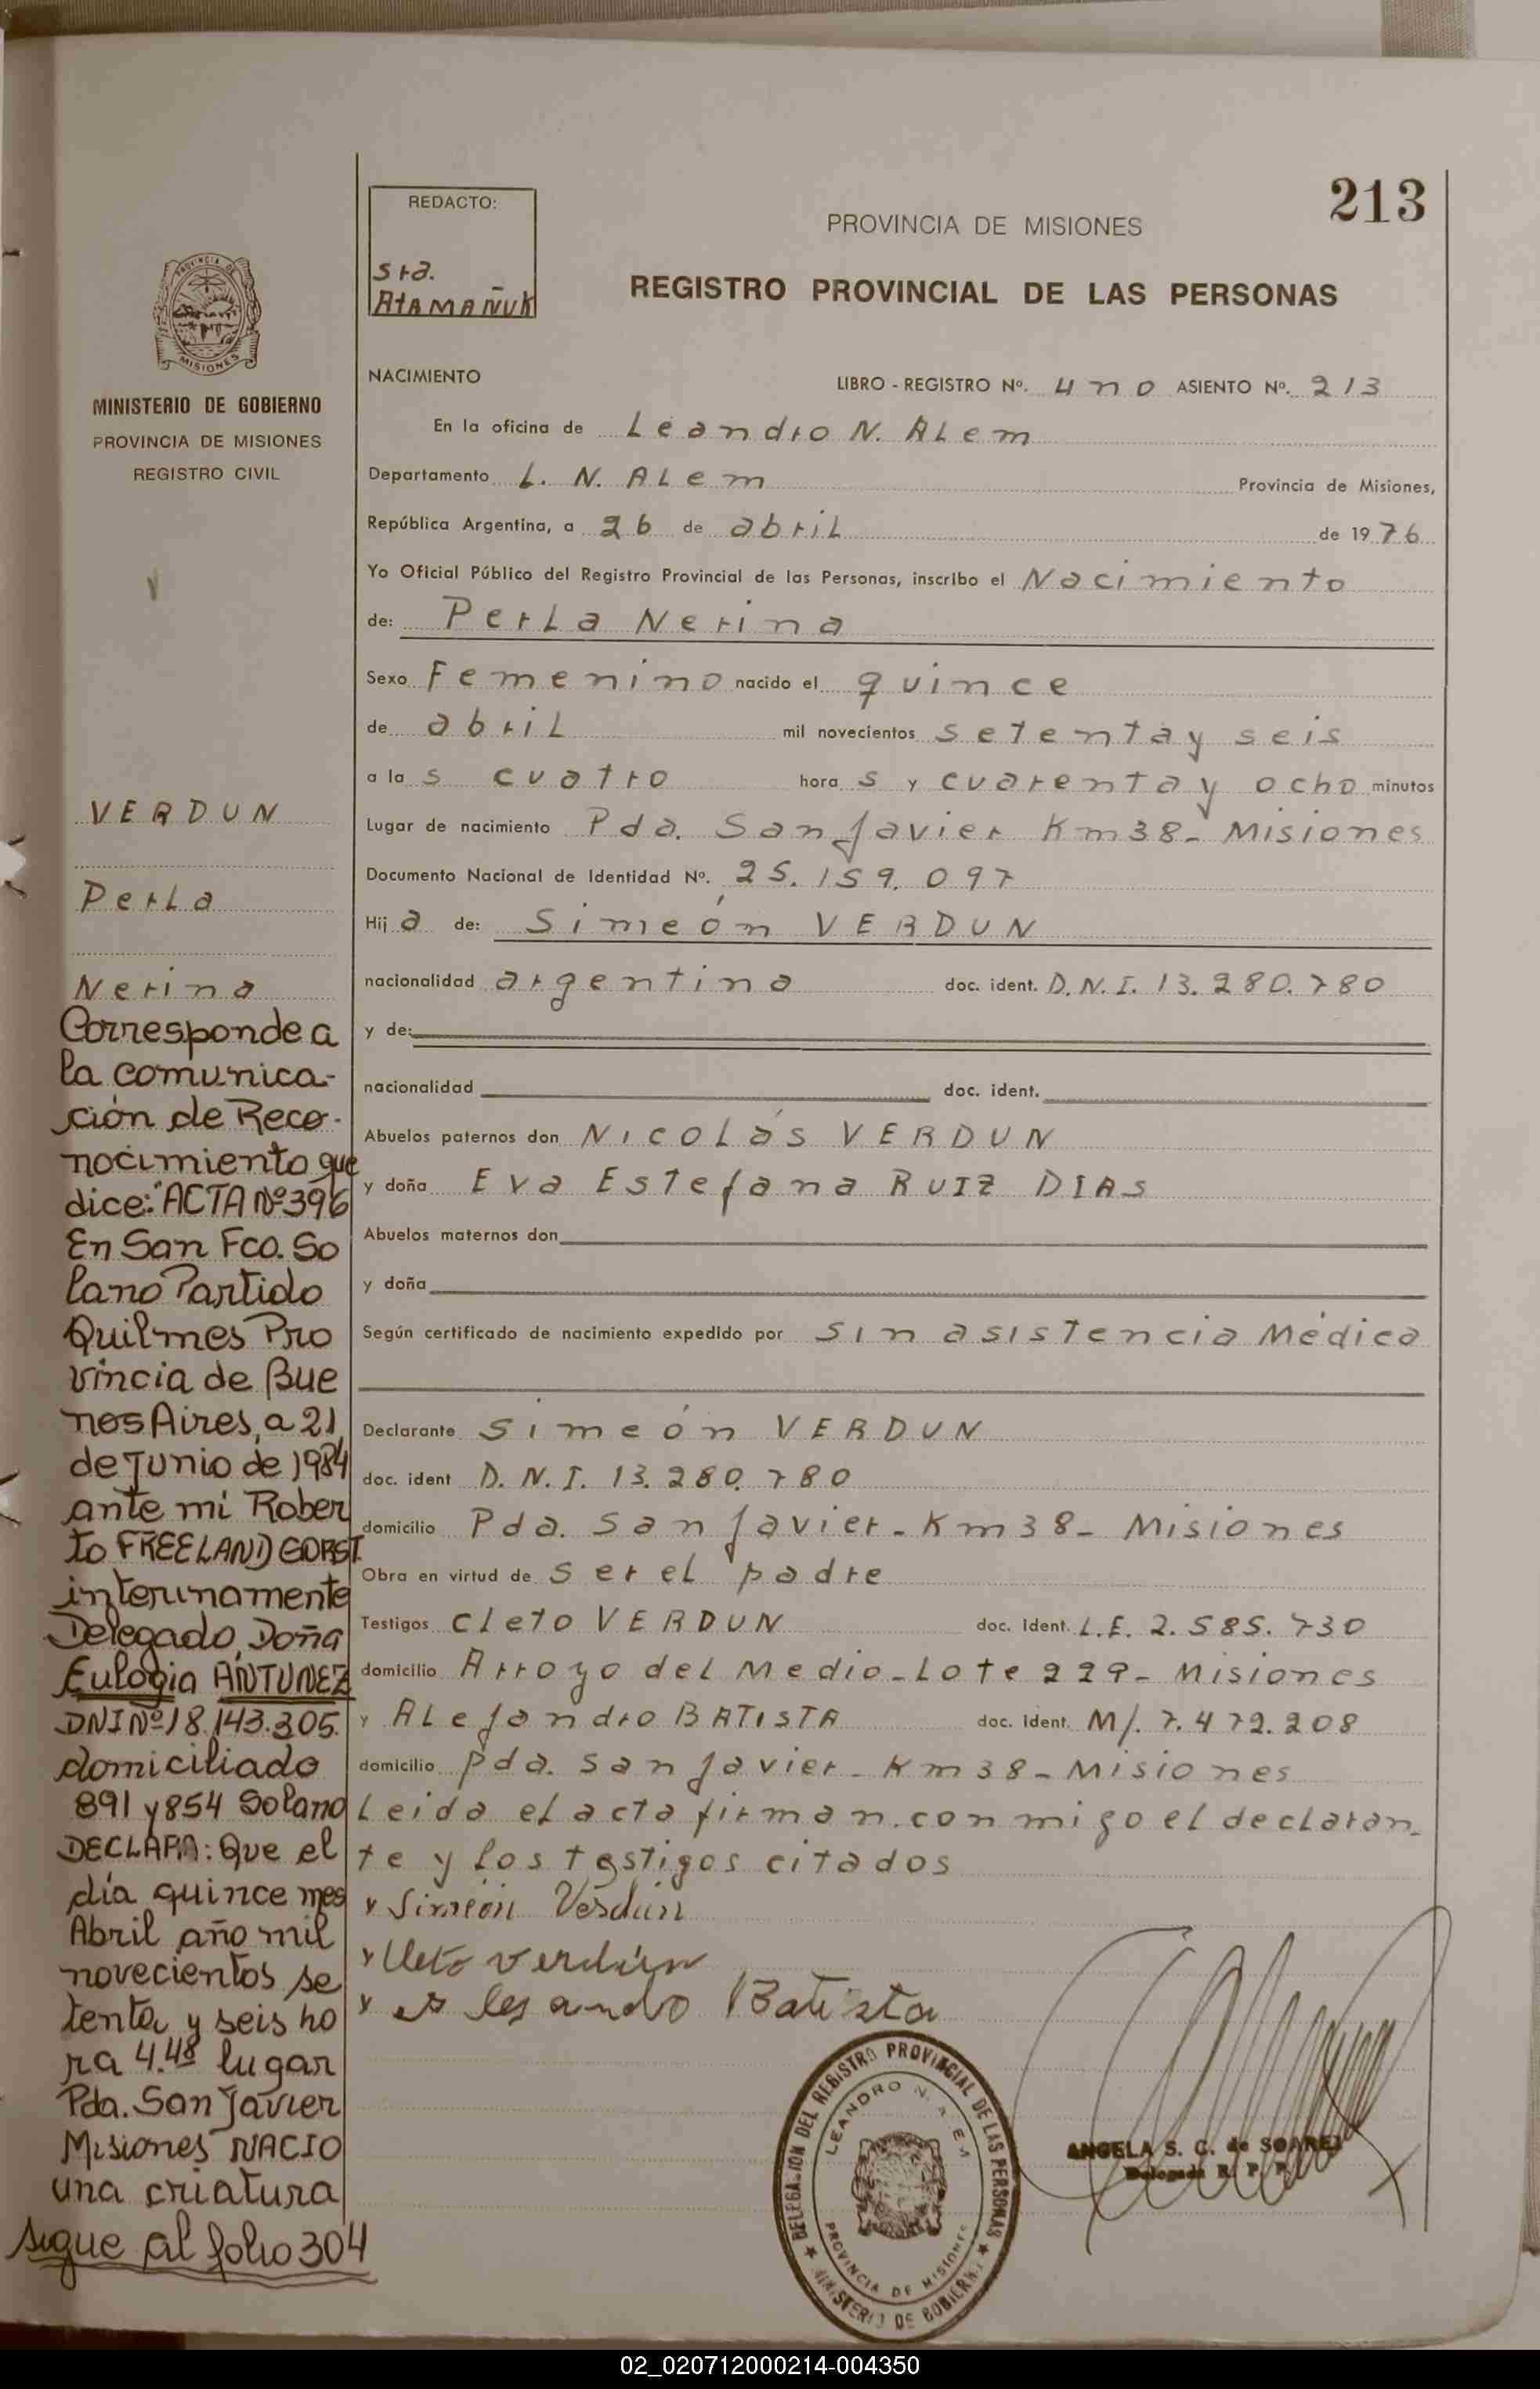 213
REDACTO:
Srta.
ATAMAÑUK
PROVINCIA DE MISIONES
REGISTRO PROVINCIAL DE LAS PERSONAS
PROVINCIA DE
MISIONES
MINISTERIO DE GOBIERNO
PROVINCIA DE MISIONES
REGISTRO CIVIL
VERDUN
Perla
Nerina
Corresponde a
la comunica-
ción de Reco-
nocimiento que
dice: "ACTA Nº 396
En San Fco. So
lano Partido
Quilmes Pro
vincia de Bue
nos Aires, a 21
de Junio de 1984
ante mi Rober
to FREELAND GORST
interinamente
Delegado, Doña
Eulogia ANTUNEZ
DNI Nº 18.143.305.
domiciliado
891 y 854 Solano
DECLARA: Que el
día quince mes
Abril año mil
novecientos se
tenta y seis ho
ra 4.48 lugar
Pda. San Javier
Misiones NACIO
una criatura
sigue al folio 304
NACIMIENTO
LIBRO - REGISTRO Nº. uno ASIENTO Nº. 213
En la oficina de Leandro N. ALem
Departamento L. N. ALem Provincia de Misiones,
República Argentina, a 26 de abril de 1976
Yo Oficial Público del Registro Provincial de las Personas, inscribo el Nacimiento
de: Perla Nerina
Sexo Femenino nacido el quince
de abril mil novecientos setenta y seis
a las cuatro horas y cuarenta y ocho minutos
Lugar de nacimiento Pda. San Javier Km 38- Misiones
Documento Nacional de Identidad Nº. 25.159.097
Hija de: Simeón VERDUN
nacionalidad argentina doc. ident. D.N.I. 13.280.780
y de:
nacionalidad doc. ident.
Abuelos paternos don Nicolás VERDUN
y doña Eva Estefana RUIZ DIAS
Abuelos maternos don
y doña
Según certificado de nacimiento expedido por sin asistencia Médica
Declarante Simeón VERDUN
doc. ident D.N.I. 13.280.780
domicilio Pda. San Javier - Km 38- Misiones
Obra en virtud de ser el padre
Testigos Cleto VERDUN doc. ident. L.E. 2.585.730
domicilio Arroyo del Medio - Lote 229- Misiones
y ALejandro BATISTA doc. ident. M/. 7.472.208
domicilio Pda. San Javier - Km 38 - Misiones
Leida el acta firman conmigo el declaran-
te y los testigos citados
x Simeón Verdún
x Cleto verdún
x Batista
DELEGACION DEL REGISTRO PROVINCIAL DE LAS PERSONAS
LEANDRO N. ALEM
PROVINCIA DE MISIONES
MINISTERIO DE GOBIERNO
ANGELA S. C. de SOAREZ
Delegada R. P. P.
02_020712000214-004350